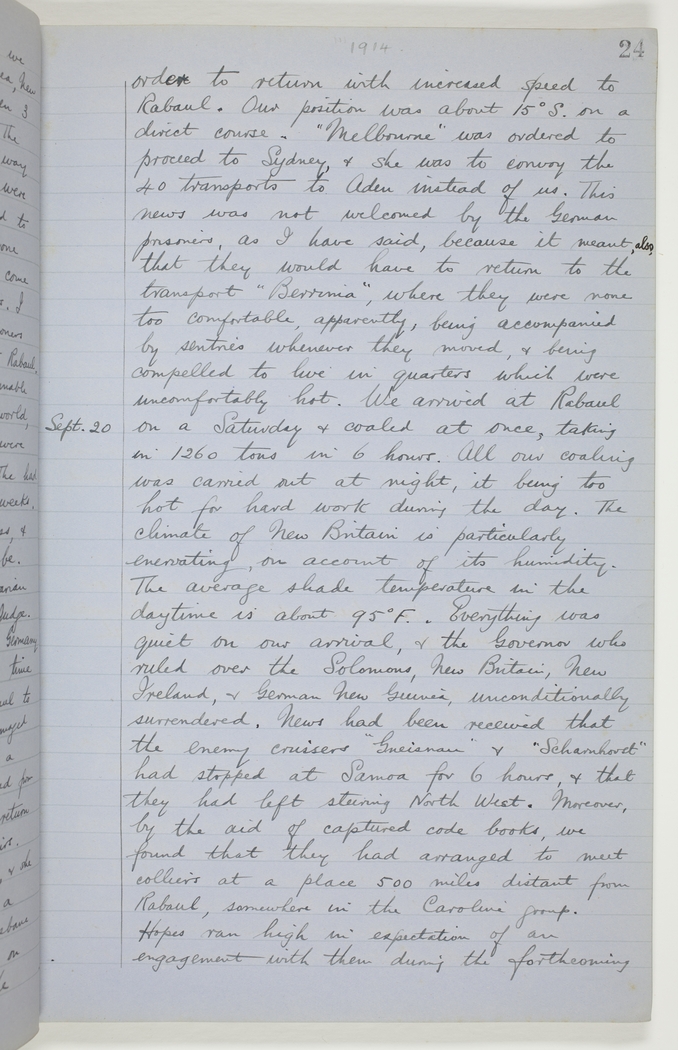 1914.
24
order to return with increased speed to
Rabaul. Our position was about 15°S. on a
direct course. "Melbourne" was ordered to
proceed to Sydney, & she was to convoy the
40 transports to Aden instead of us. This
news was not welcomed by the German
prisoners, as I have said, because it meant, also,
that they would have to return to the
transport "Berrima", where they were none
too comfortable, apparently, being accompanied
by sentries whenever they moved, & being
compelled to live in quarters which were
uncomfortably hot. We arrived at Rabaul
Sept. 20 on a Saturday & coaled at once, taking
in 1260 tons in 6 hours. All our coaling
was carried out at night, it being too
hot for hard work during the day. The
climate of New Britain is particularly
enervating, on account of its humidity.
The average shade temperature in the
daytime is about 95°F. . Everything was
quiet on our arrival, & the Governor who
ruled over the Solomons, New Britain, New
Ireland, & German New Guinea, unconditionally
surrendered. News had been received that
the enemy cruisers "Gneisnau" & "Scharnhorst"
had stopped at Samoa for 6 hours, & that
they had left steering North West. Moreover,
by the aid of captured code books, we
found that they had arranged to meet
colliers at a place 500 miles distant from
Rabaul, somewhere in the Caroline group.
Hopes ran high in expectation of an
engagement with them during the forthcoming